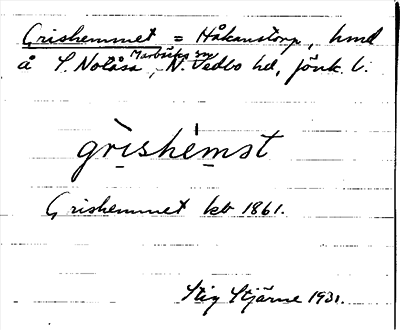 Grishemmet = Håkanstorp, hmd
å S. Notåsa, Marbäcks sn N. Vedbo hd, Jönk. l.
grishemst
Grishemmet kb 1861.
Stig Stjärne 1931.